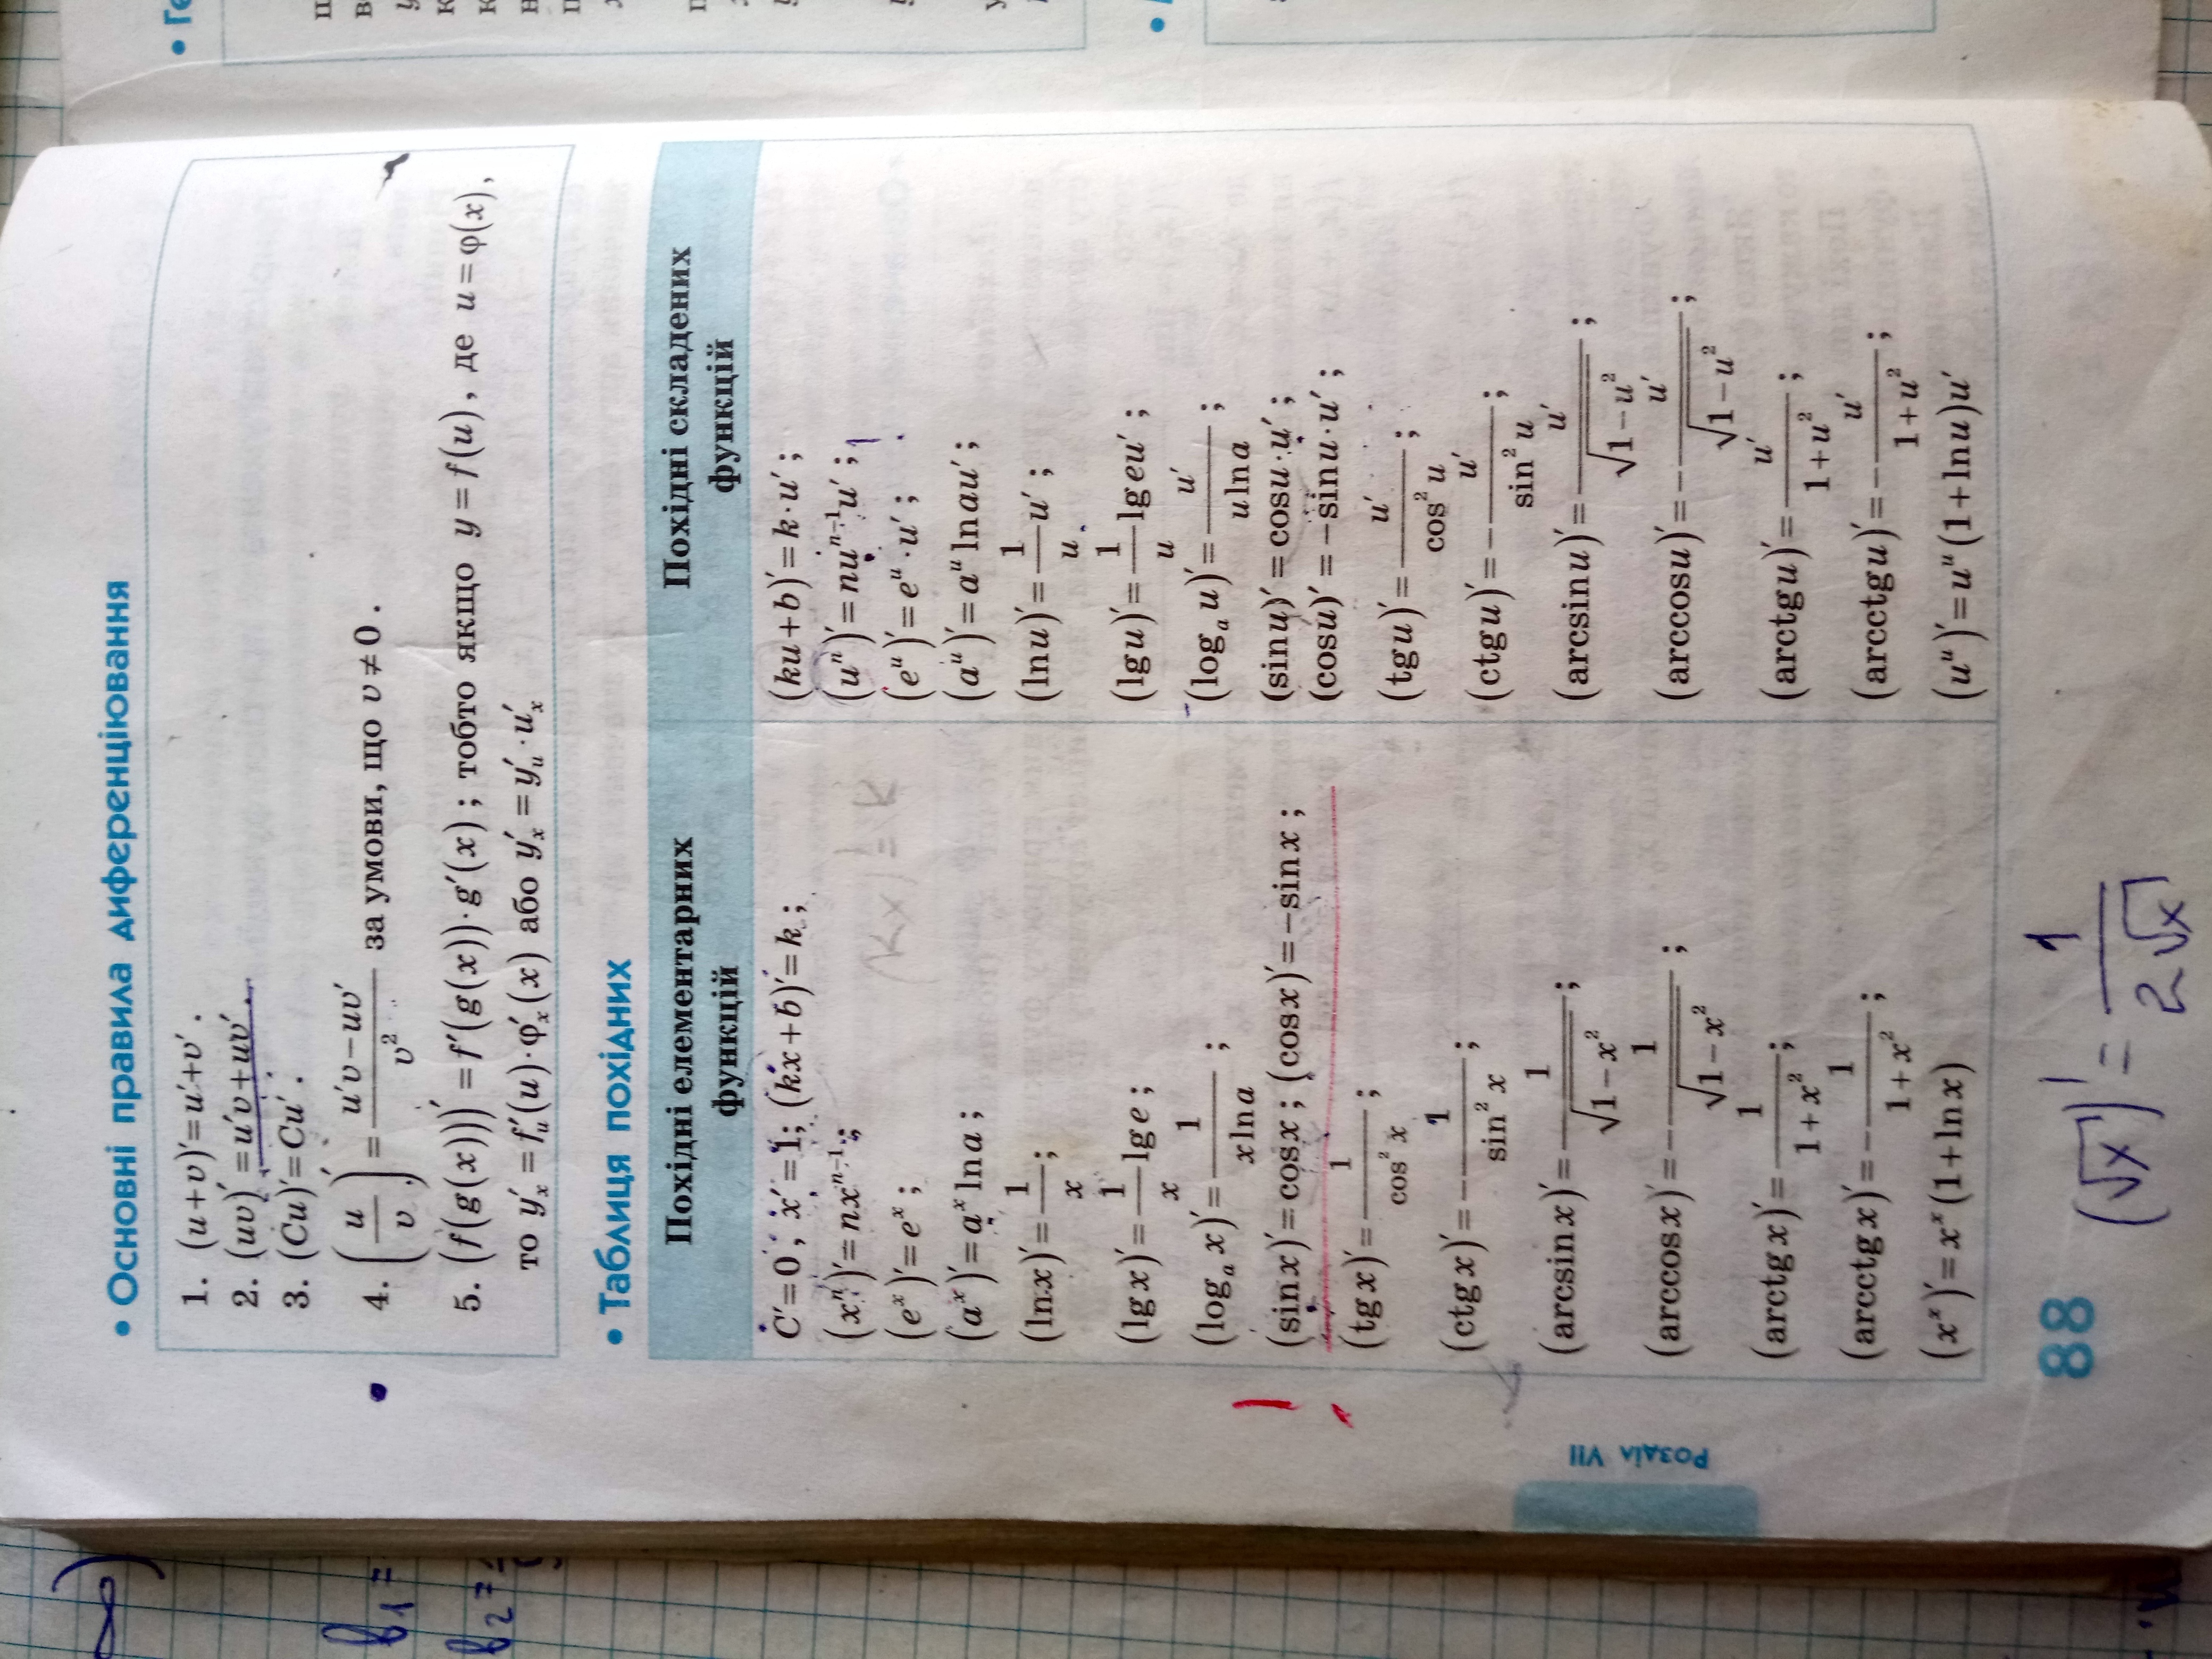 • Основні правила диференціювання
1. (u+v)′=u′+v′.
2. (uv)′=u′v+uv′.
3. (Cu)′=Cu′.
4. (u/v)′=(u′v−uv′)/v² за умови, що v≠0.
5. (f(g(x)))′=f′(g(x))·g′(x); тобто якщо y=f(u), де u=φ(x),
то y′ₓ=f′ᵤ(u)·φ′ₓ(x) або y′ₓ=y′ᵤ·u′ₓ
• Таблиця похідних
Похідні елементарних функцій
Похідні складених функцій
C′=0, x′=1; (kx+b)′=k;
(ku+b)′=k·u′;
(xⁿ)′=nxⁿ⁻¹;
(uⁿ)′=nuⁿ⁻¹u′;
(kx)′=k
(eˣ)′=eˣ;
(eᵘ)′=eᵘ·u′;
(aˣ)′=aˣlna;
(aᵘ)′=aᵘlnau′;
(lnx)′=1/x;
(lnu)′=1/u u′;
(lgx)′=1/x lge;
(lgu)′=1/u lgeu′;
(logₐx)′=1/(xlna);
(logₐu)′=u′/(ulna);
(sinx)′=cosx; (cosx)′=−sinx;
(sinu)′=cosu·u′;
(cosu)′=−sinu·u′;
(tgx)′=1/cos²x;
(tgu)′=u′/cos²u;
(ctgx)′=−1/sin²x;
(ctgu)′=−u′/sin²u;
(arcsinx)′=1/√(1−x²);
(arcsinu)′=u′/√(1−u²);
(arccosx)′=−1/√(1−x²);
(arccosu)′=−u′/√(1−u²);
(arctgx)′=1/(1+x²);
(arctgu)′=u′/(1+u²);
(arcctgx)′=−1/(1+x²);
(arcctgu)′=−u′/(1+u²);
(xˣ)′=xˣ(1+lnx)
(uᵘ)′=uᵘ(1+lnu)u′
Розділ VII
88
(√x)′=1/(2√x)